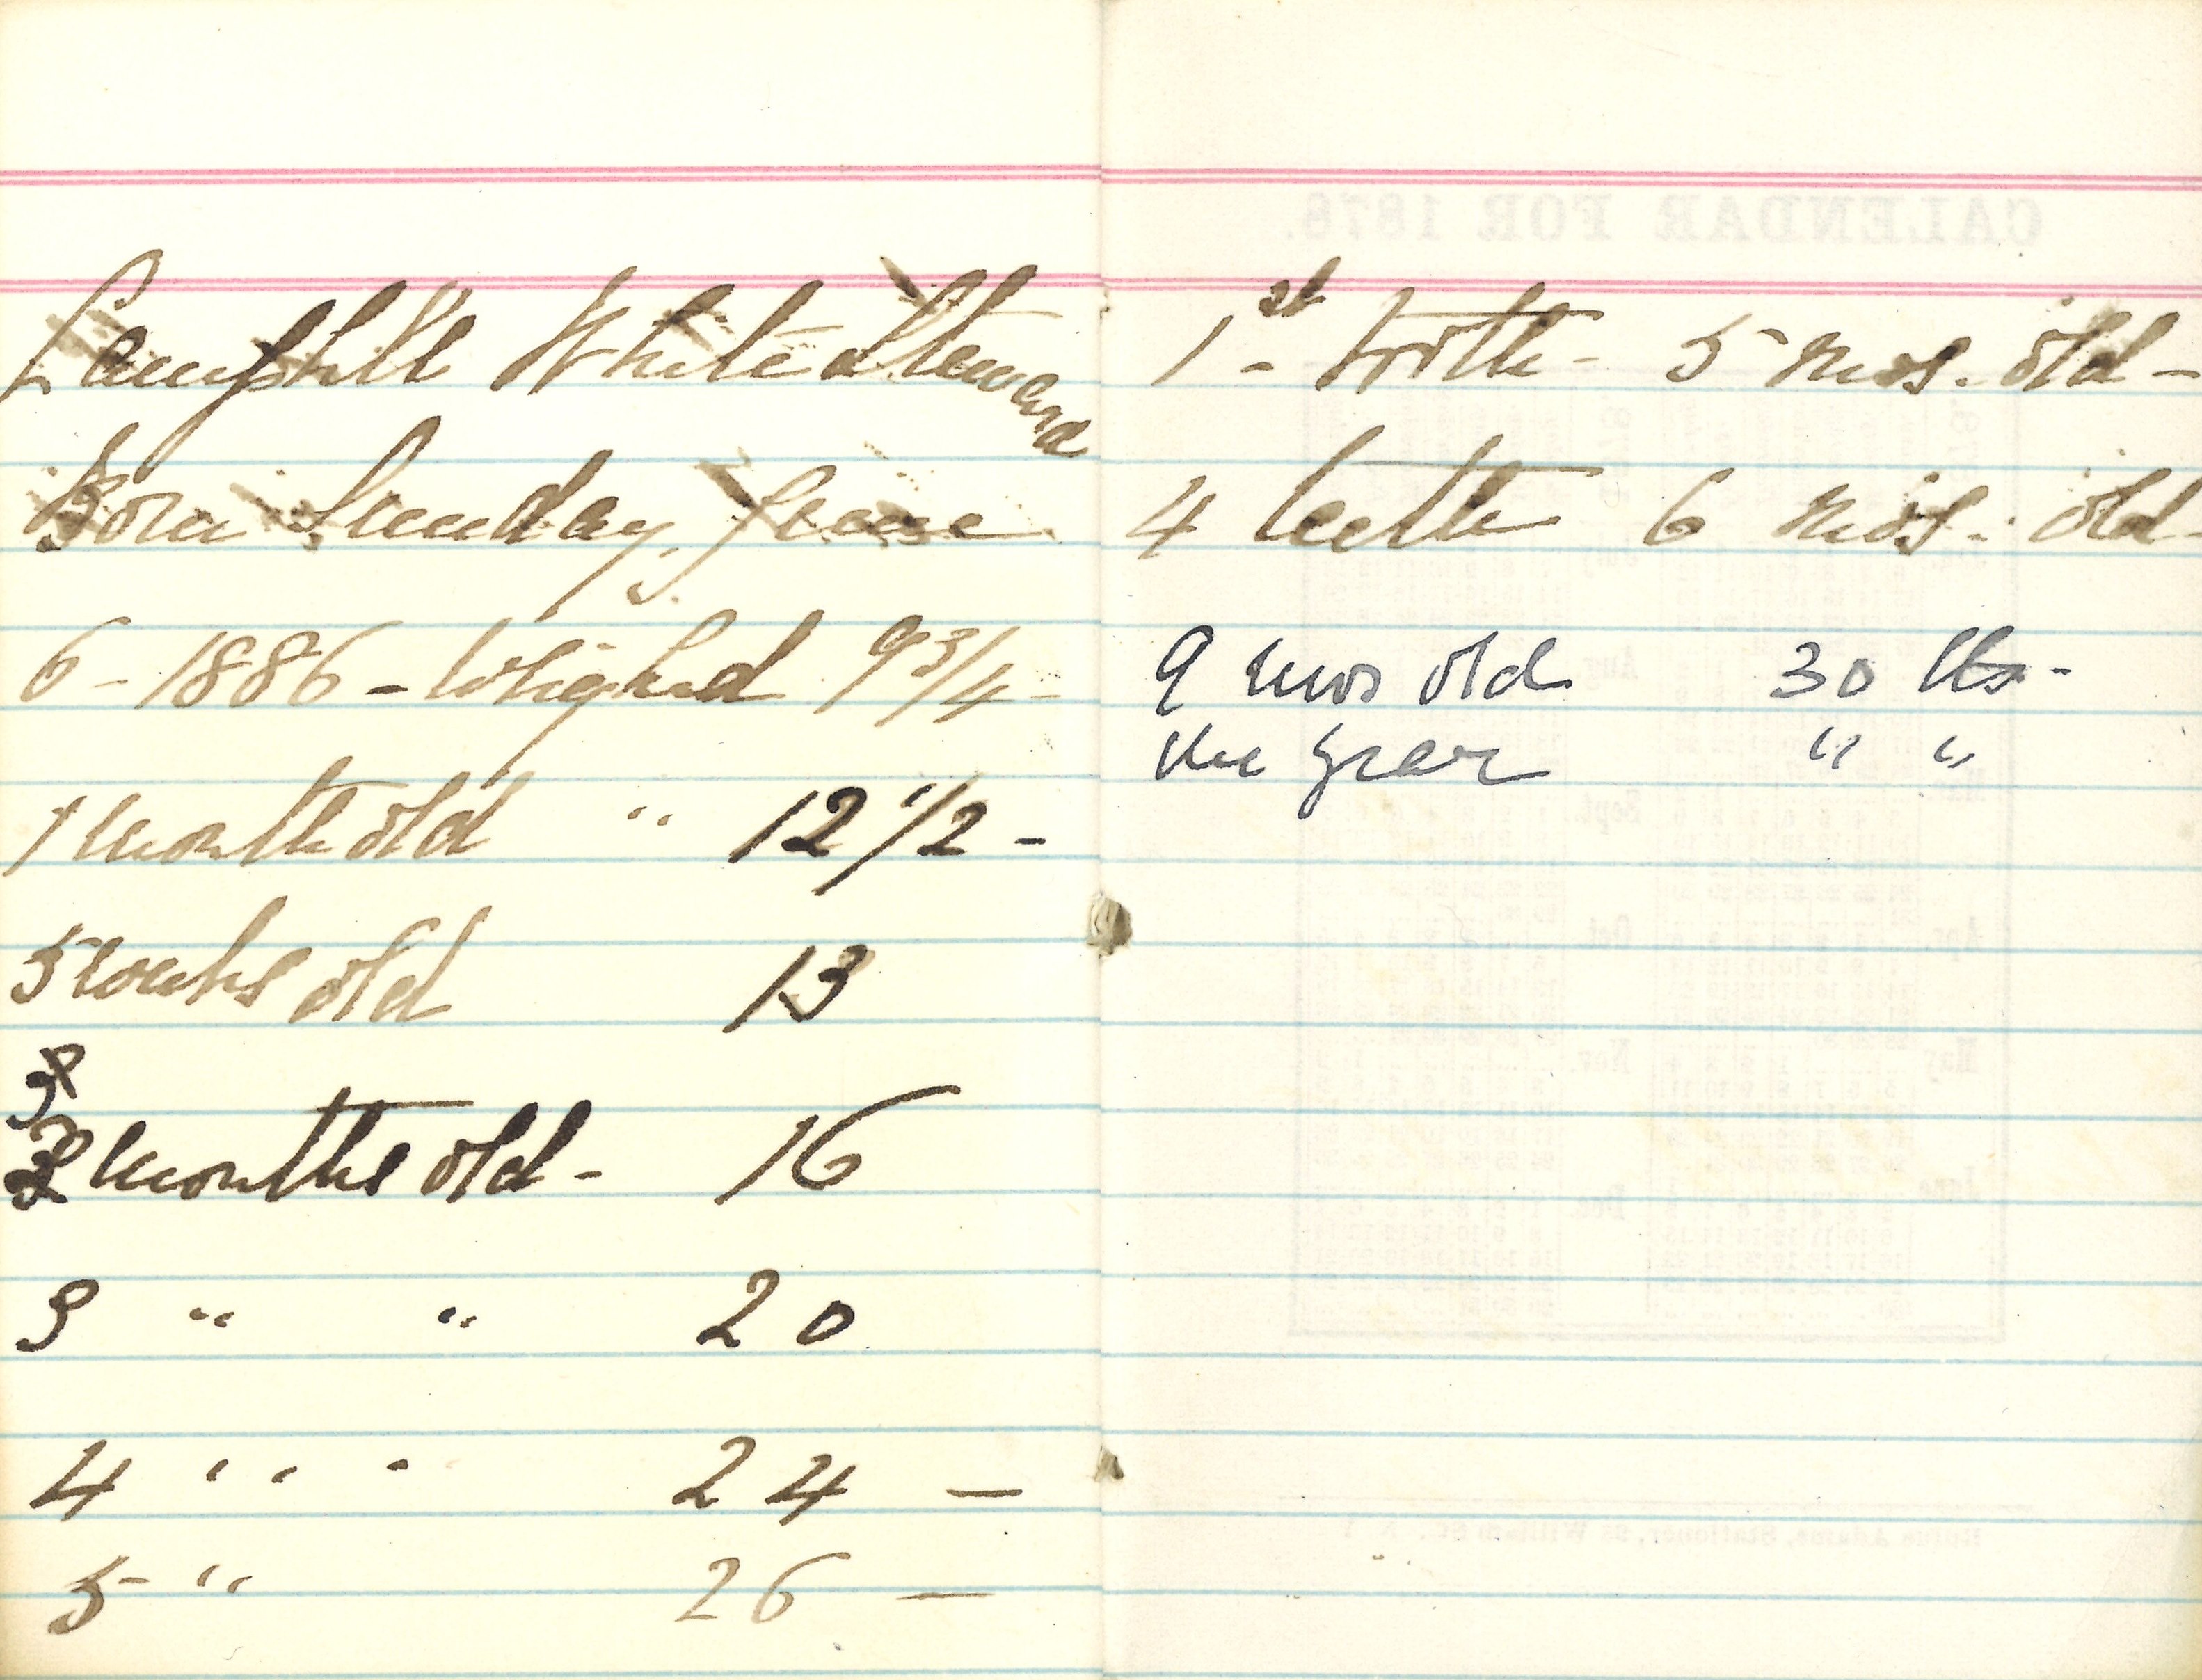 Campbell White Steward
Born Sunday, June
6 - 1886 - Weighed 9 3/4 -
1 month old " 12 1/2 -
5 weeks old 13
2 months old - 16
3 " " 20
4 " " 24 -
5 " 26 -
CALENDAR FOR 1878.
1st - tooth - 5 mos. old -
4 teeth 6 mos. old -
9 mos old 30 lbs -
One year " "